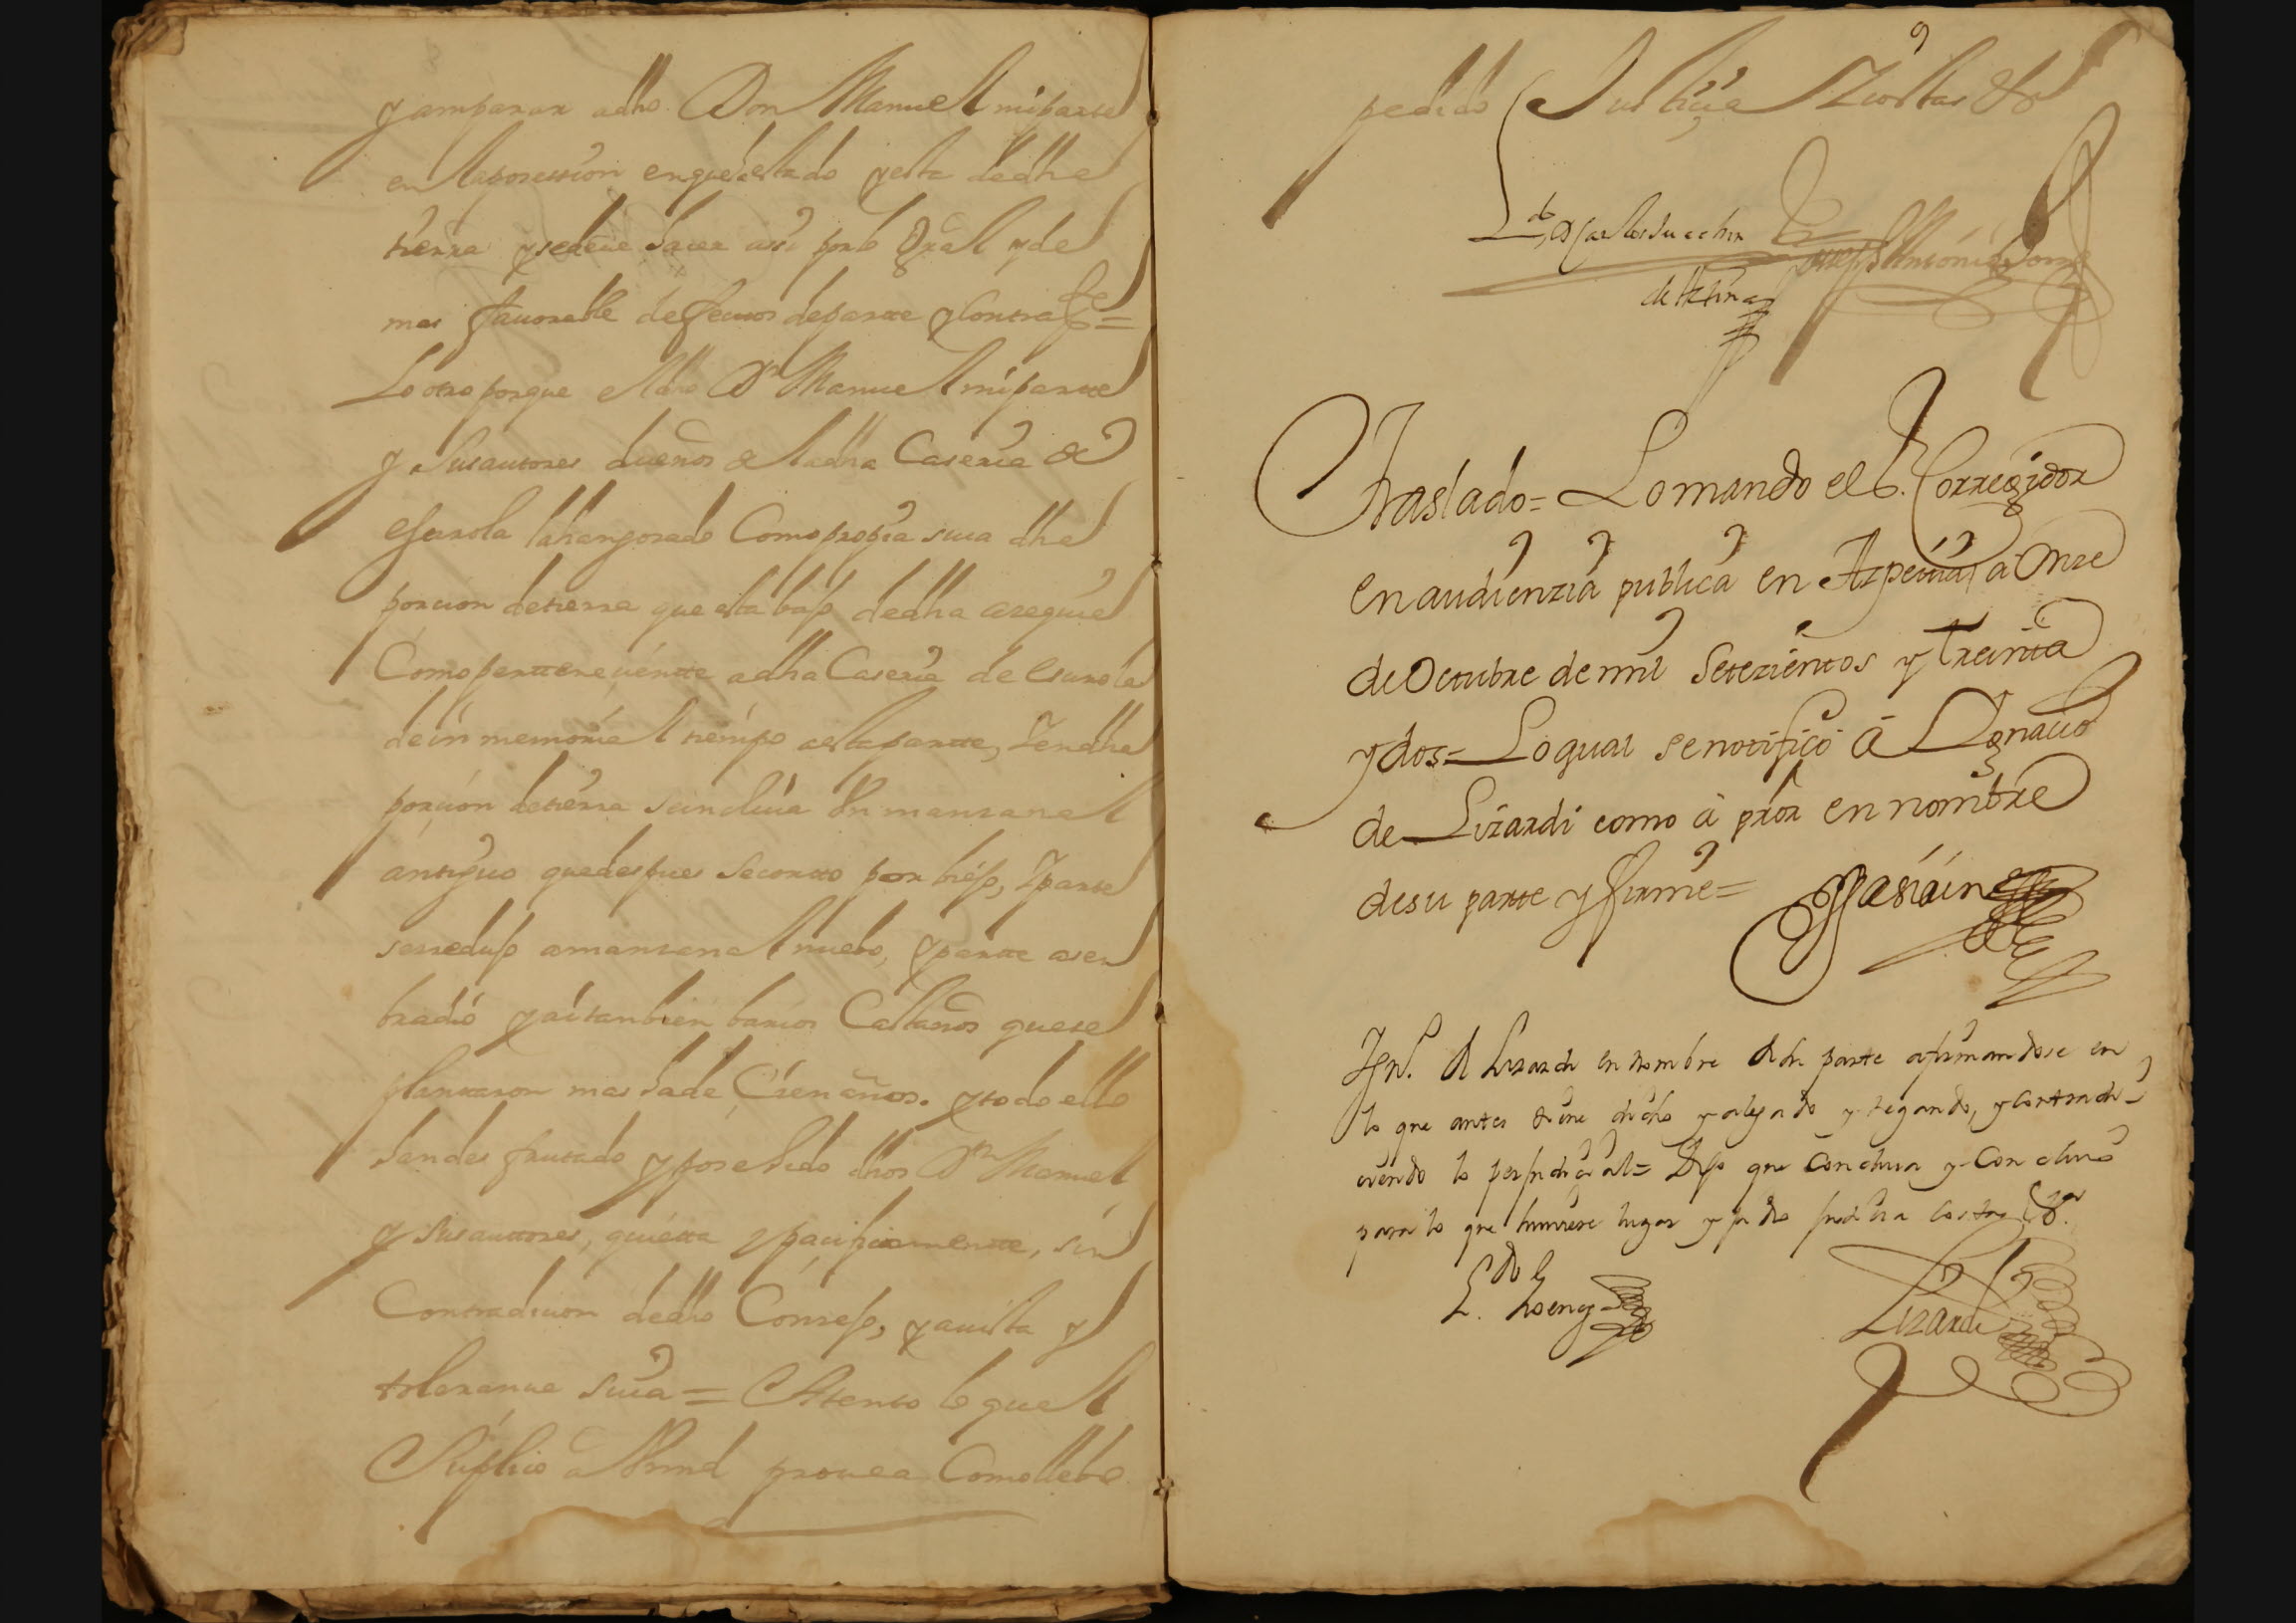 y amparar adho Don Manuel mi parte
en la posession en que ha estado y esta de dha
tierra y se deue hacer assi por lo Gral y de
mas fauorable de fecuos de parte y Contra fe =
Lo otro porque el dho Dn Manuel mi parte
y sus autores dueños de la dha Caseria de
esurola la han gosado Como propia suia dha
porcion de tierra que esta bajo de dha asequia
Como perttenecientte a dha Caseria de esurola
de in memorial tiempo a esta partte, Y en dha
porcion de tierra se incluia Un mansanal
antiguo que despues se cortto por biejo, Y parte
se redujo a mansanal nuebo, y partte a sem
bradio y asi tanbien barios Castaños que se
plantaron mas ha de Cien años. y todo ello
han desfrutado y posehido dhos Dn Manuel
y sus auttores, quietta y pacificamentte, sin
Contradicion de dho Consejo, y a uista y
tolerancia suia = Atento lo qual
Suplico a Vmd prouea Como llebo
pedido Justicia Costas &a
Ldo Dn Carlos de
Joseph Antonio
Traslado = Lo mando el S. Corregidor
en audienzia publica en Azpeitia a Onze
de Octubre de mil Setezientos y treinta
y dos = Lo qual se notifico â Ygnacio
de Lizardi como â pror en nombre
de su parte y firme =
Ign. de Lizardi en nombre de su parte afirmandose en
lo que antes tiene dicho y alegado y negando, y contradi-
ciendo lo perjudicial = Dijo que Concluia y Concluio
para lo que huuiere lugar y pidio justicia costas &a
Ldo
Lizardi